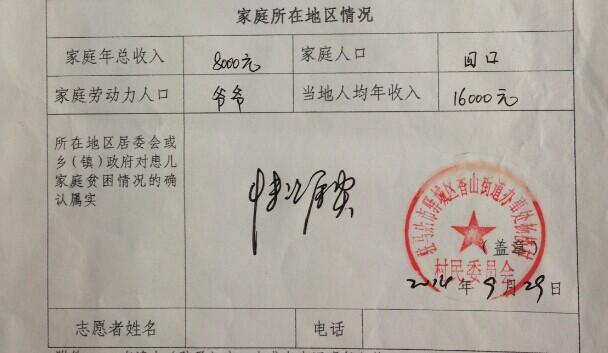 家庭所在地区情况
家庭年总收入 8000元 家庭人口 四口
家庭劳动力人口 爷爷 当地人均年收入 16000元
所在地区居委会或
乡(镇)政府对患儿
家庭贫困情况的确
认属实
情况属实
驻马店市驿城区香山街道办事处
村民委员会
(盖章)
2014年9月29日
志愿者姓名 电话